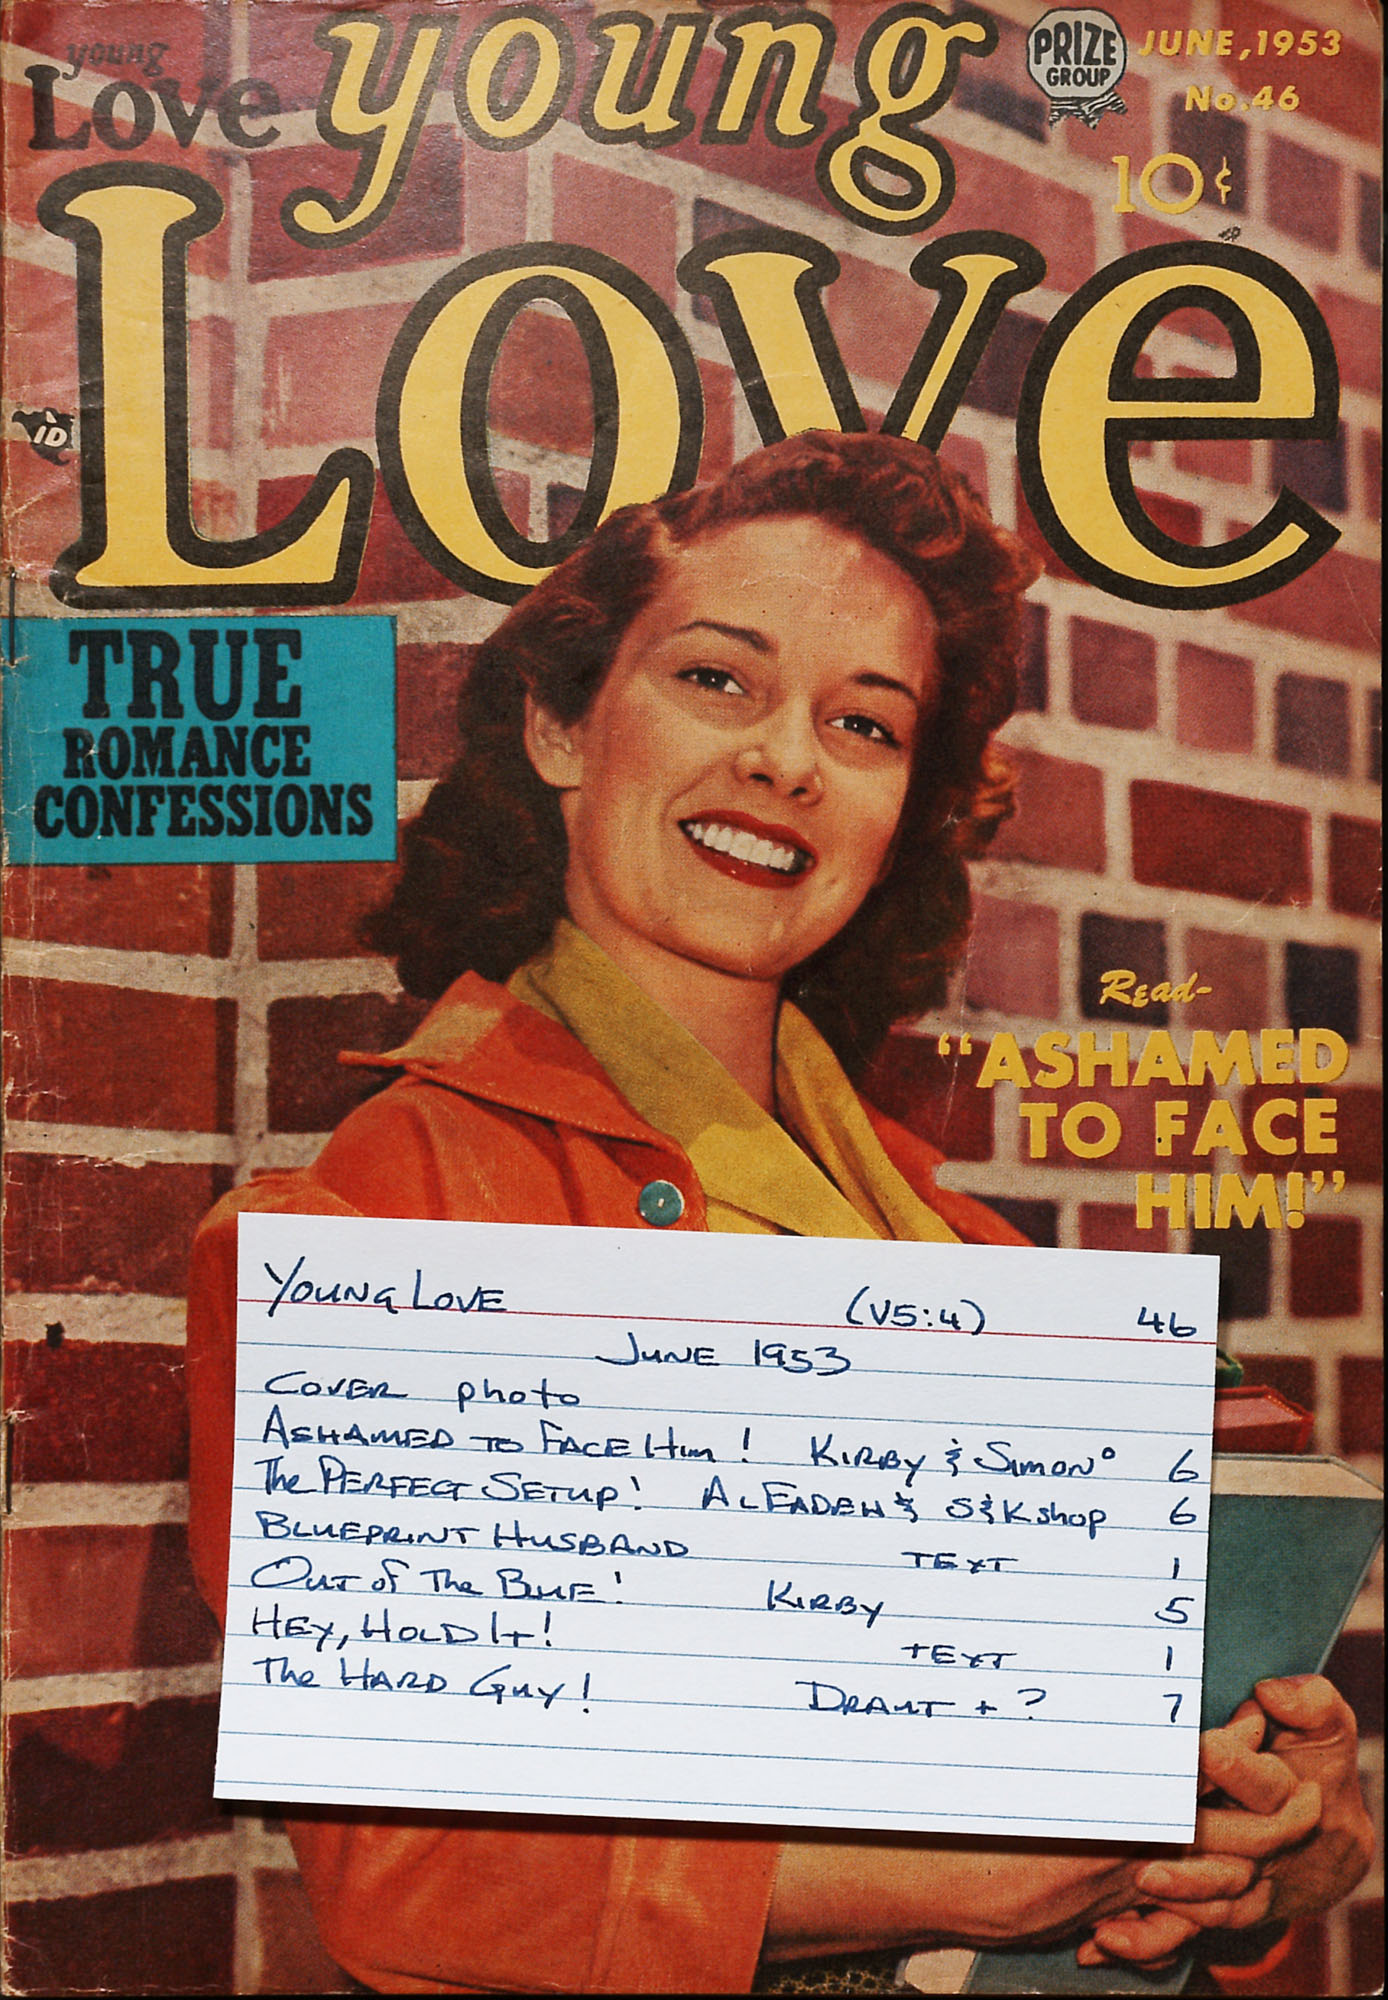 young
Love
young
Love
PRIZE
GROUP
JUNE, 1953
No. 46
10¢
ID
TRUE
ROMANCE
CONFESSIONS
Read-
"ASHAMED
TO FACE
HIM!"
YOUNG LOVE (V5:4) 46
JUNE 1953
COVER photo
ASHAMED TO FACE Him! KIRBY & SIMON° 6
The PERFECT SETUP! AL EADEH & S&K shop 6
BLUEPRINT HUSBAND TEXT 1
OUT of The BLUE! KIRBY 5
HEY, HOLD IT! TEXT 1
The HARD GUY! DRAUT + ? 7